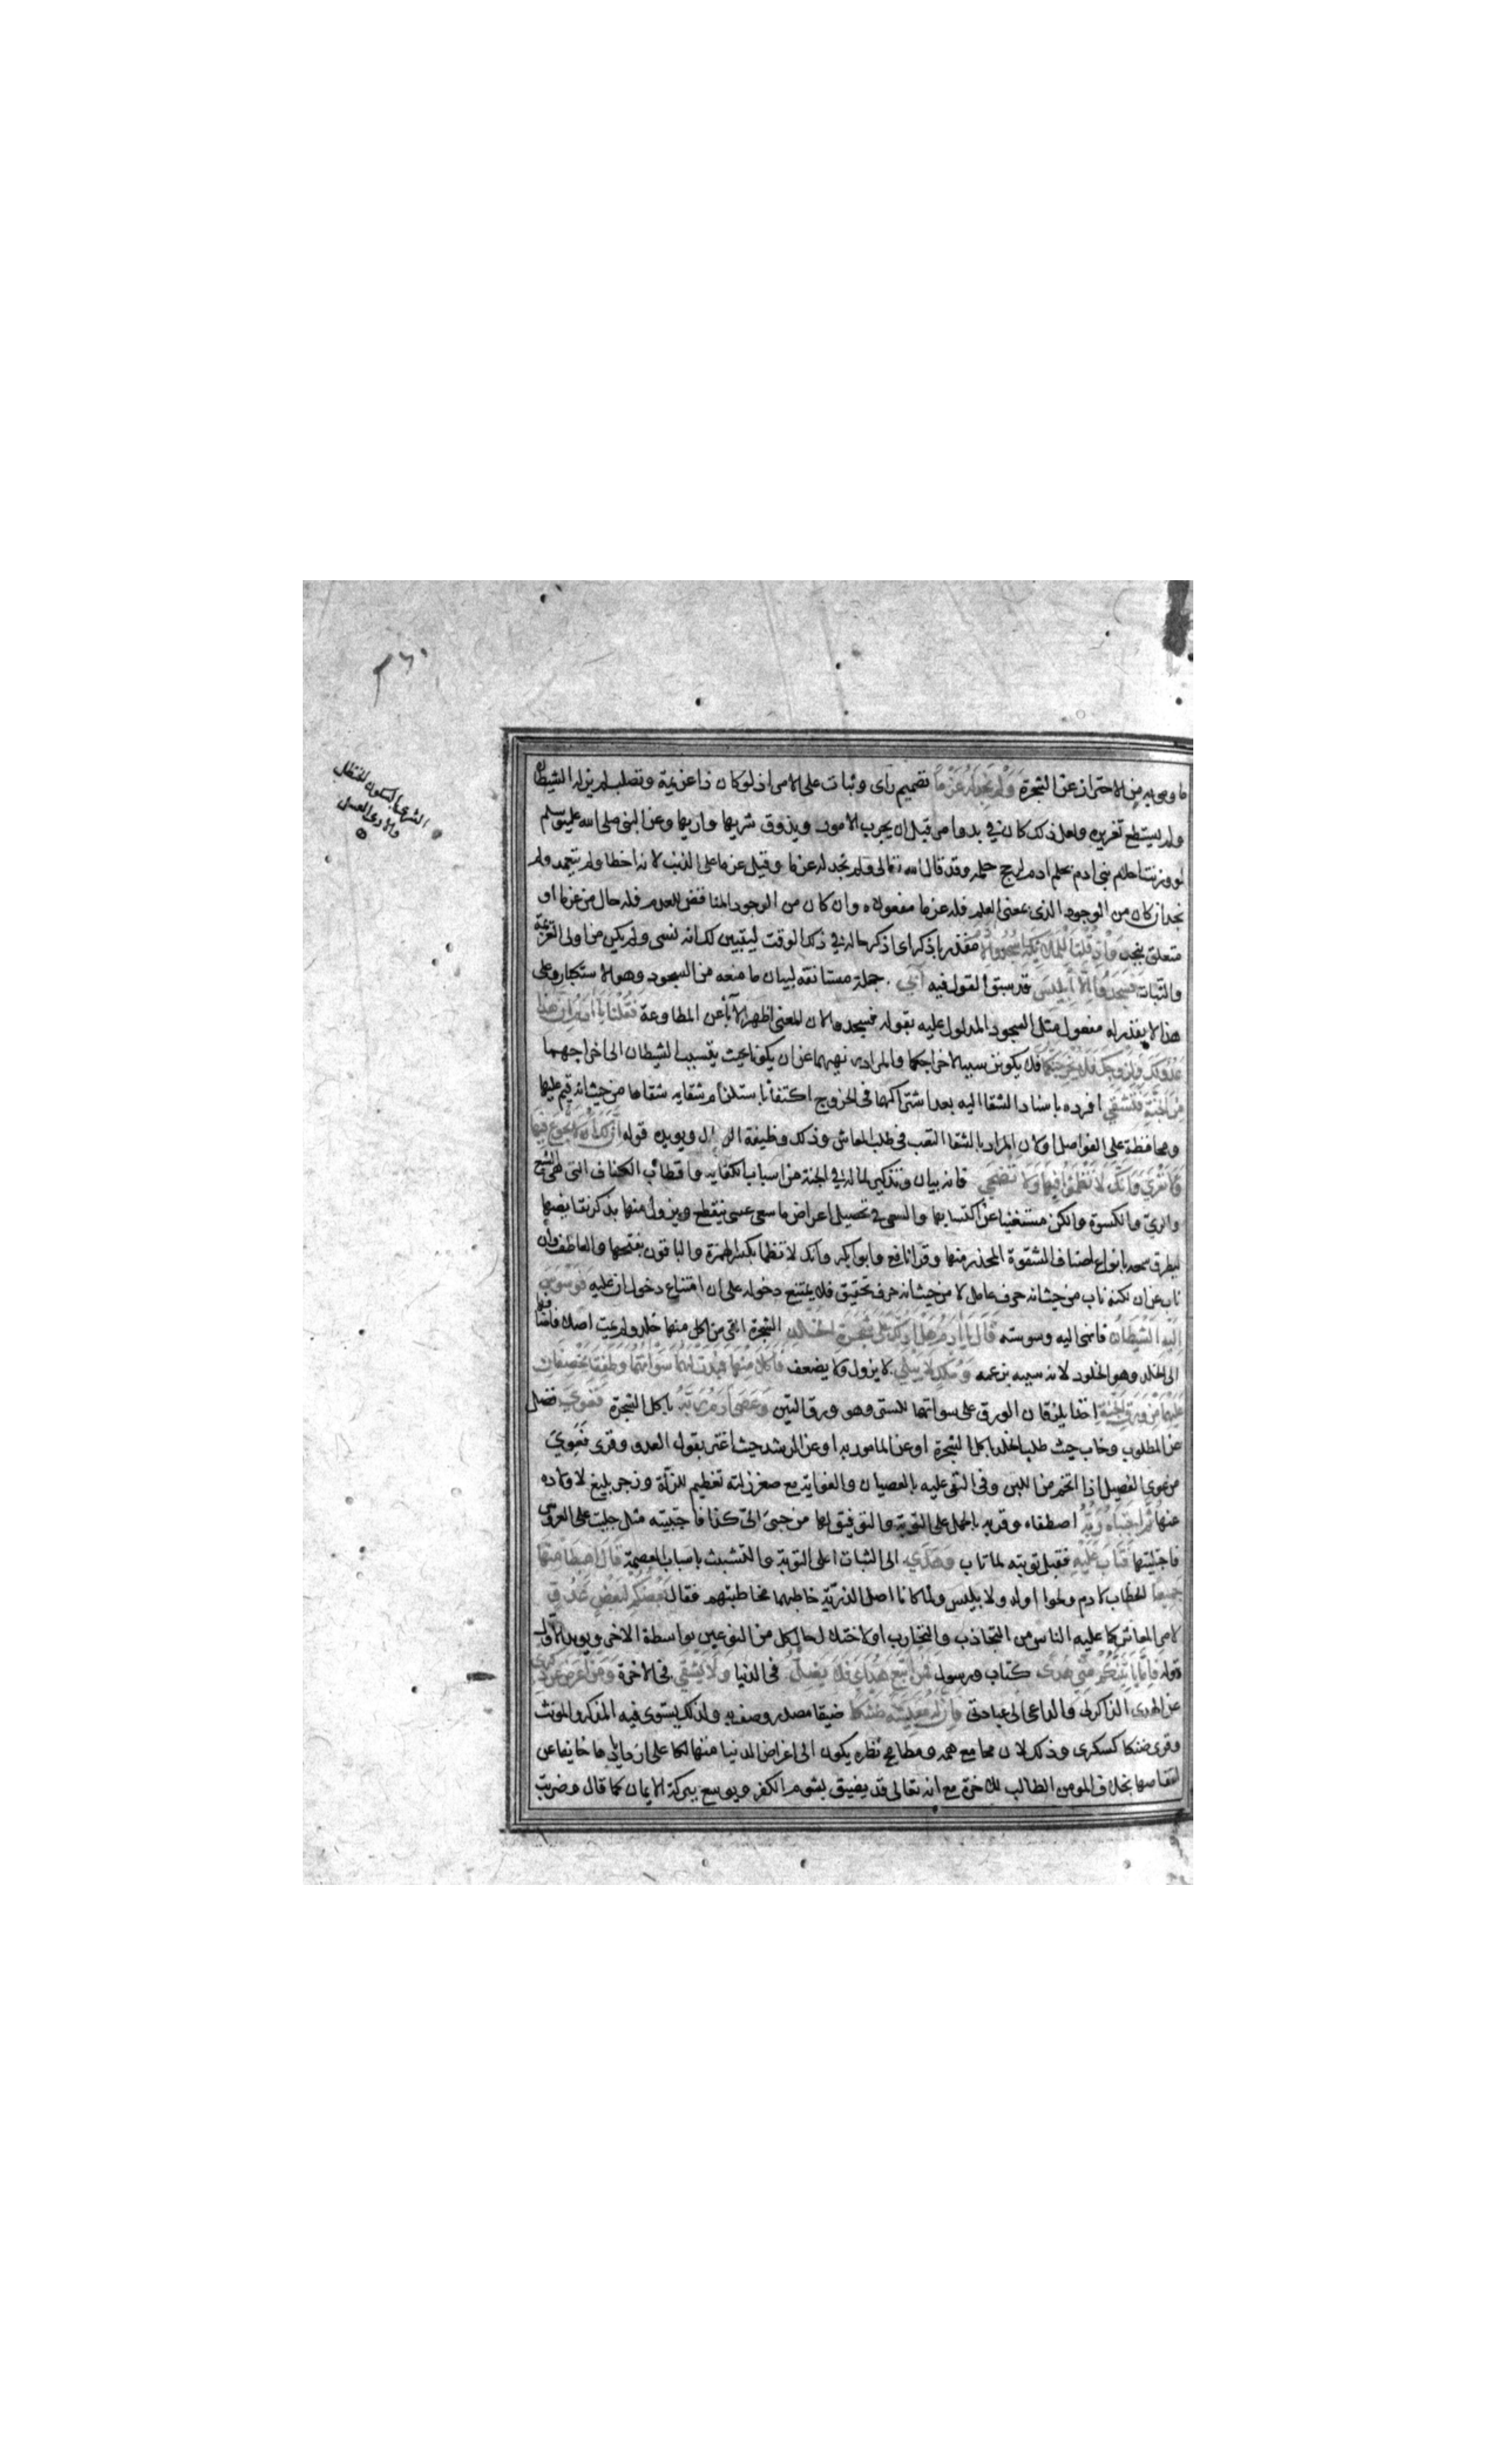 ٢٦٠
الشرى بالسكون الحنظل
والارى العسل
ما وصى به من الاحتراز عن الشجرة وَلَمْ نَجِدْ لَهُ عَزْماً تصميم راى وثبات على الامر اذ لو كان ذا عزيمة وتصلب لم يزله الشيطان
ولم يستطع تغريره ولعل ذلك كان في بدو امره قبل ان يجرب الامور ويذوق شريها واريها وعن النبي صلى الله عليه وسلم
لو وزنت احلام بنى ادم بحلم ادم لرجح حلمه وقد قال الله تعالى ولم نجد له عزما وقيل عزما على الذنب لانه اخطا ولم يتعمد ولم
نجد ان كان من الوجود الذى بمعنى العلم فله عزما مفعولاه وان كان من الوجود المناقض للعدم فله حال من عزما او
متعلق بنجد وَإِذْ قُلْنَا لِلْمَلَائِكَةِ اسْجُدُوا لِآدَمَ مقدر باذكر اى اذكر حاله في ذلك الوقت ليتبين لك انه نسى ولم يكن من اولى العزيمة
والثبات فَسَجَدُوا إِلَّا إِبْلِيسَ قد سبق القول فيه أَبَى جملة مستانفة لبيان ما منعه من السجود وهو الاستكبار وعلى
هذا لا يقدر له مفعول مثل السجود المدلول عليه بقوله فسجدوا لان المعنى اظهر الاباء عن المطاوعة فَقُلْنَا يَا آدَمُ إِنَّ هَذَا
عَدُوٌّ لَكَ وَلِزَوْجِكَ فَلَا يُخْرِجَنَّكُمَا فلا يكونن سببا لاخراجكما والمراد به نهيهما عن ان يكونا بحيث يتسبب الشيطان الى اخراجهما
مِنَ الْجَنَّةِ فَتَشْقَى افرده باسناد الشقا اليه بعد اشتراكهما في الخروج اكتفاء باستلزام شقايه شقاها من حيث انه قيم عليها
ومحافظة على الفواصل ولان المراد بالشقا التعب في طلب المعاش وذلك وظيفة الرجال ويويده قوله إِنَّ لَكَ أَلَّا تَجُوعَ فِيهَا
وَلَا تَعْرَى وَأَنَّكَ لَا تَظْمَؤُا فِيهَا وَلَا تَضْحَى فانه بيان وتذكير لما له في الجنة من اسباب الكفاية واقطاب الكفاف التى هى الشبع
والرى والكسوة والكن مستغنيا عن اكتسابها والسعى في تحصيل اعراض ما سعى عسى ينقطع ويزول منها بذكر نقايضها
ليطرق سمعه بانواع اصناف الشقوة المحذر منها وقرا نافع وابو بكر وانك لا تظما بكسر الهمزة والباقون بفتحها والعاطف وان
ناب عن ان لكنه ناب من حيث انه حرف عامل لا من حيث انه حرف تحقيق فلا يمتنع دخوله على ان امتناع دخول ان عليه فَوَسْوَسَ
إِلَيْهِ الشَّيْطَانُ فانهى اليه وسوسته قَالَ يَا آدَمُ هَلْ أَدُلُّكَ عَلَى شَجَرَةِ الْخُلْدِ الشجرة التى من اكل منها خلد ولم يمت اصلا فاضافها
الى الخلد وهو الخلود لانه سببه بزعمه وَمُلْكٍ لَا يَبْلَى لا يزول ولا يضعف فَأَكَلَا مِنْهَا فَبَدَتْ لَهُمَا سَوْآتُهُمَا وَطَفِقَا يَخْصِفَانِ
عَلَيْهِمَا مِنْ وَرَقِ الْجَنَّةِ اخذا يلزقان الورق على سواتهما للستر وهو ورق التين وَعَصَى آدَمُ رَبَّهُ باكل الشجرة فَغَوَى فضل
عن المطلوب وخاب حيث طلب الخلد باكل الشجرة او عن المامور به او عن الرشد حيث اغتر بقول العدو وقرى فَغَوِيَ
من غوى الفصيل اذا اتخم من اللبن وفى النعى عليه بالعصيان والغواية مع صغر زلته تعظيم للزلة وزجر بليغ لاولاده
عنها ثُمَّ اجْتَبَاهُ رَبُّهُ اصطفاه وقربه بالحمل على التوبة والتوفيق لها من جبى الىّ كذا فاجتبيته مثل جليت على العروس
فاجتليتها فَتَابَ عَلَيْهِ فقبل توبته لما تاب وَهَدَى الى الثبات على التوبة والتشبث باسباب العصمة قَالَ اهْبِطَا مِنْهَا
جَمِيعاً الخطاب لادم وحوا او له ولابليس ولما كانا اصل الذرية خاطبهما مخاطبتهم فقال بَعْضُكُمْ لِبَعْضٍ عَدُوٌّ
لامر المعاش كما عليه الناس من التجاذب والتحارب او لاختلال حال كل من النوعين بواسطة الاخر ويويد الاول
قوله فَإِمَّا يَأْتِيَنَّكُمْ مِنِّي هُدًى كتاب ورسول فَمَنِ اتَّبَعَ هُدَايَ فَلَا يَضِلُّ فى الدنيا وَلَا يَشْقَى فى الاخرة وَمَنْ أَعْرَضَ عَنْ ذِكْرِي
عن الهدى الذاكر لى والداعى الى عبادتى فَإِنَّ لَهُ مَعِيشَةً ضَنْكاً ضيقا مصدر وصف به ولذلك يستوى فيه المذكر والمونث
وقرى ضنكى كسكرى وذلك لان مجامع همه ومطامح نظره يكون الى اعراض الدنيا متهالكا على ازديادها خايفا عن
انتقاصها بخلاف المومن الطالب للاخرة مع انه تعالى قد يضيق بشوم الكفر ويوسع ببركة الايمان كما قال وضربت